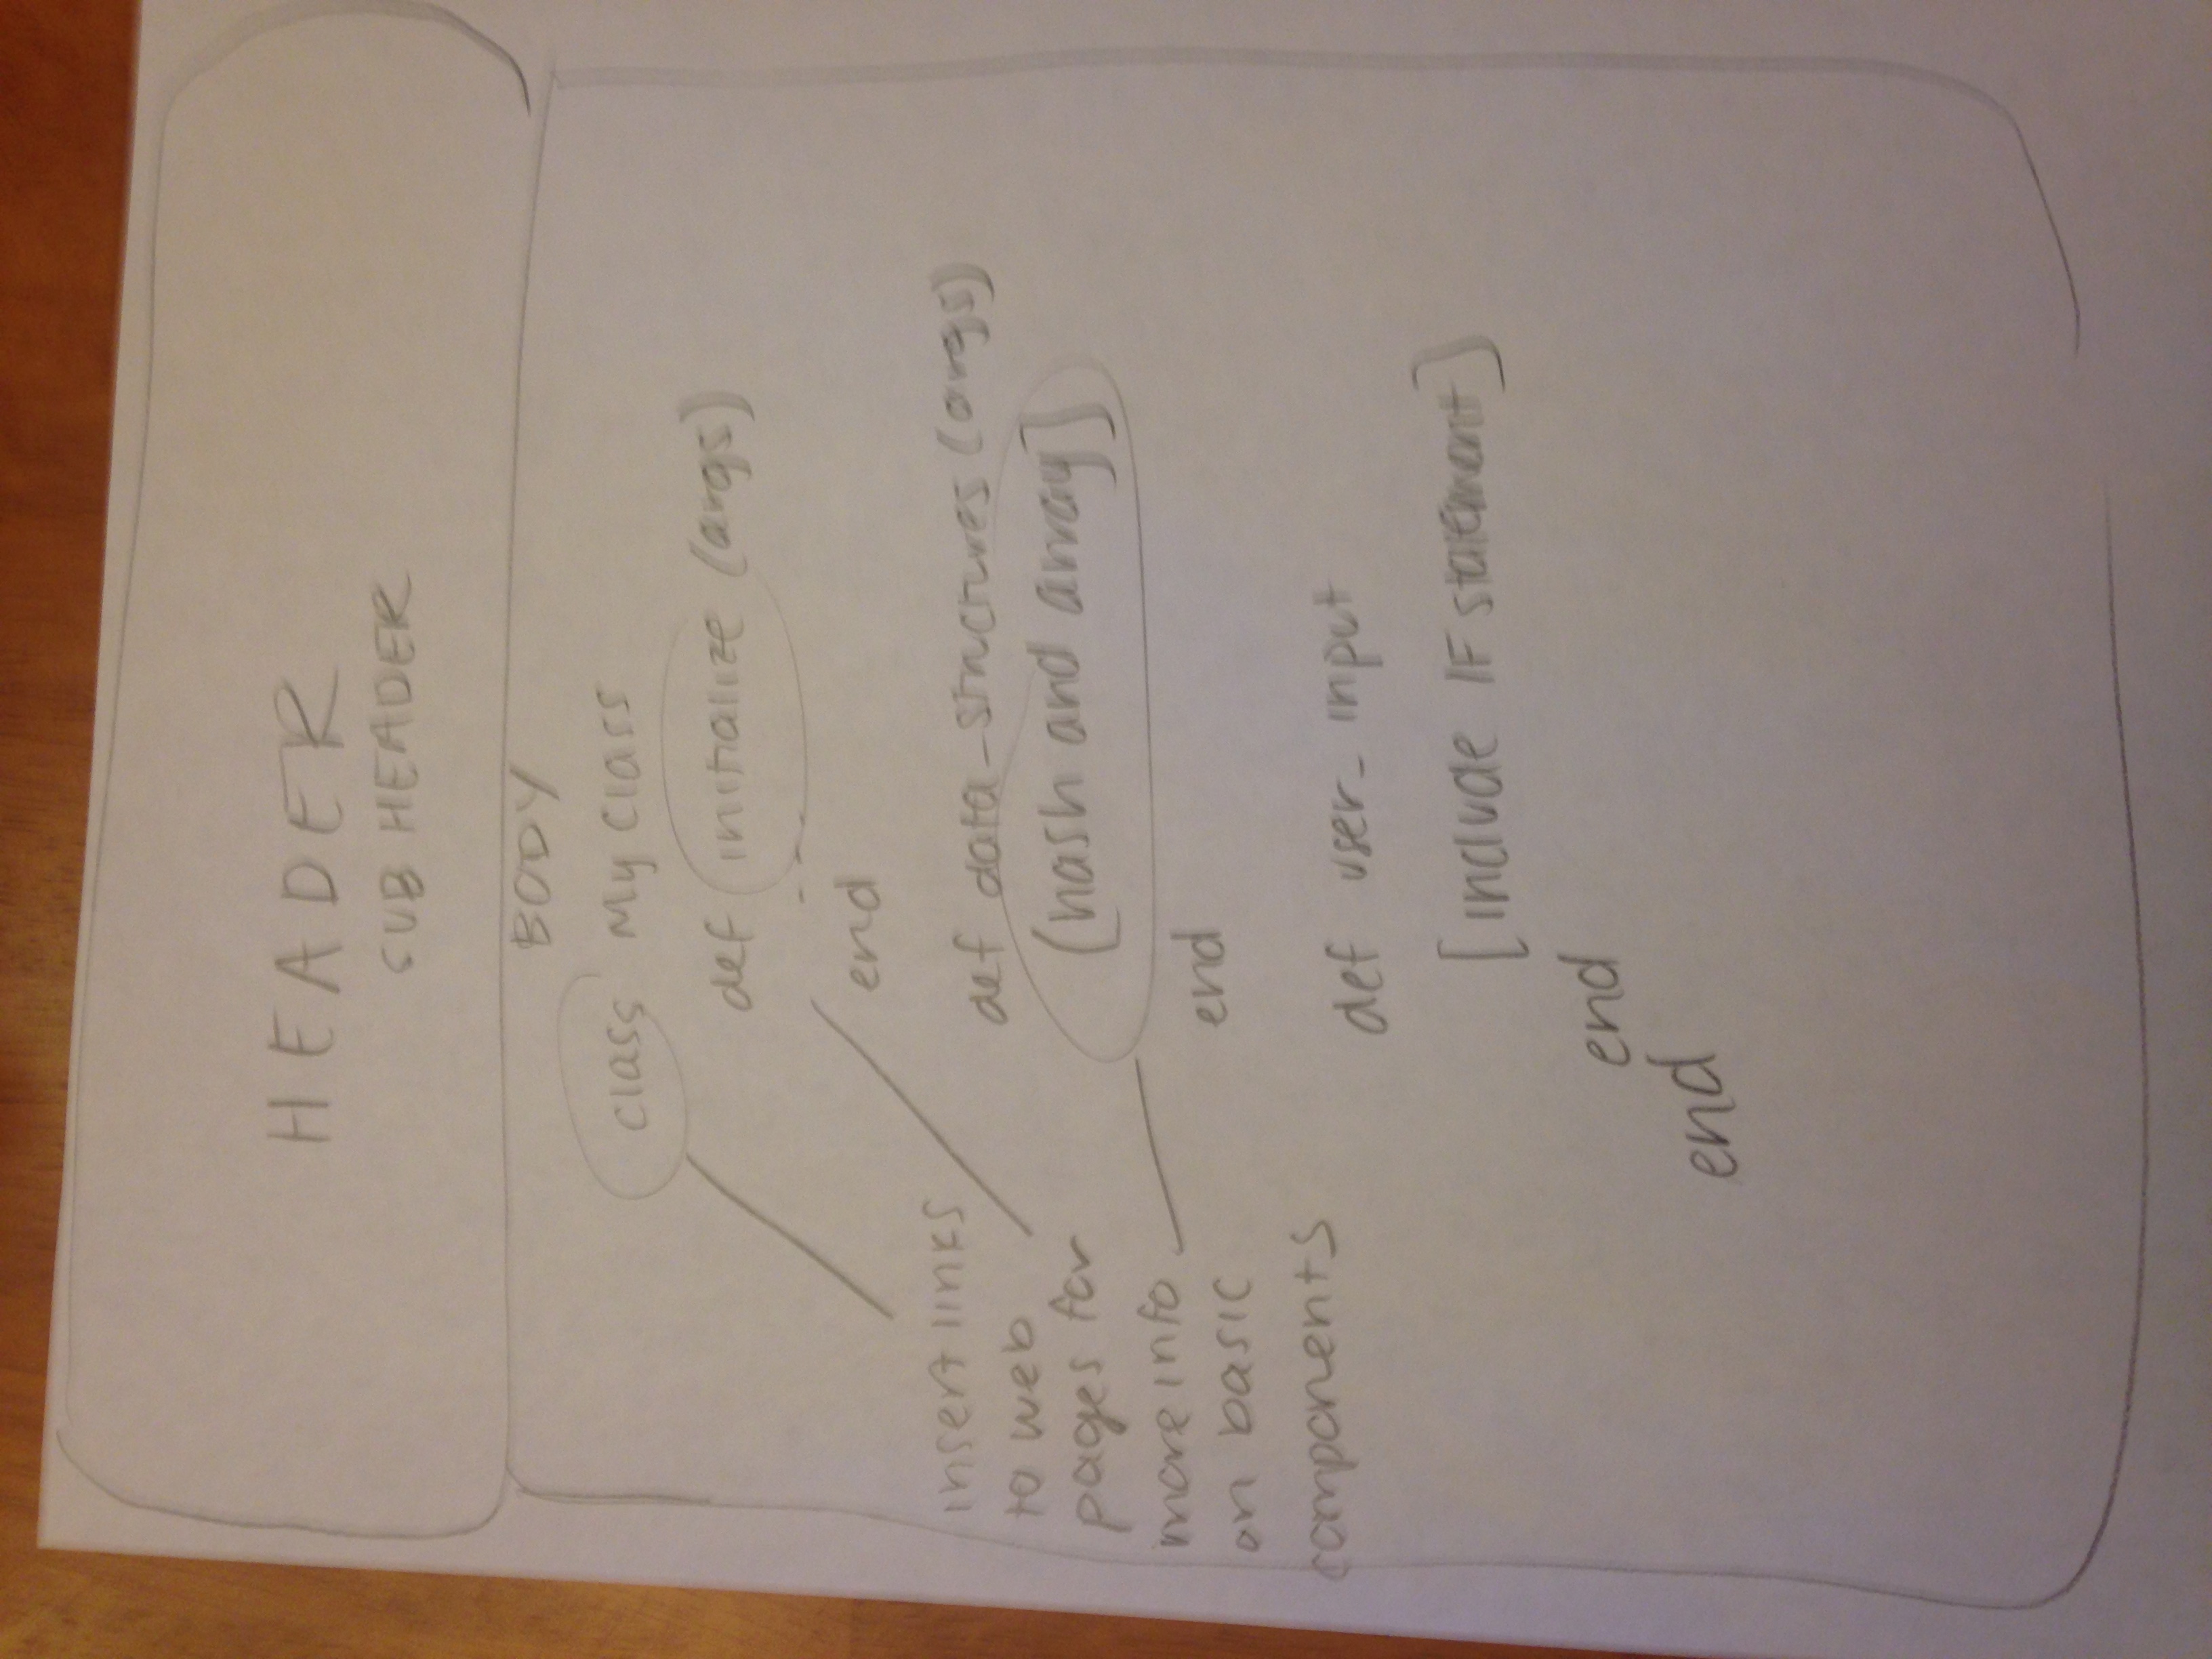 HEADER
SUB HEADER
BODY
class My Class
def initialize (args)
---
end
def data_structures (args)
(hash and array]
end
def user_input
[include IF statement]
end
end
insert links
to web
pages for
more info
on basic
components